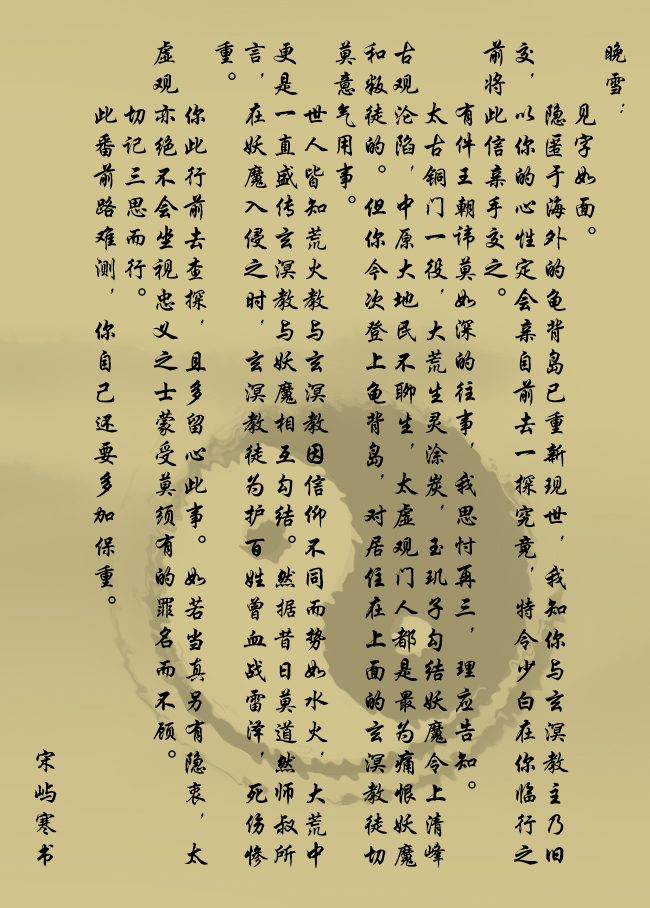 晚雪：
见字如面。
隐匿于海外的龟背岛已重新现世，我知你与玄溟教主乃旧
交，以你的心性定会亲自前去一探究竟，特令少白在你临行之
前将此信亲手交之。
有件王朝讳莫如深的往事，我思忖再三，理应告知。
太古铜门一役，大荒生灵涂炭，玉玑子勾结妖魔令上清峰
古观沦陷，中原大地民不聊生，太虚观门人都是最为痛恨妖魔
和叛徒的。但你今次登上龟背岛，对居住在上面的玄溟教徒切
莫意气用事。
世人皆知荒火教与玄溟教因信仰不同而势如水火，大荒中
更是一直盛传玄溟教与妖魔相互勾结。然据昔日莫道然师叔所
言，在妖魔入侵之时，玄溟教徒为护百姓曾血战雷泽，死伤惨
重。
你此行前去查探，且多留心此事。如若当真另有隐衷，太
虚观亦绝不会坐视忠义之士蒙受莫须有的罪名而不顾。
切记三思而行。
此番前路难测，你自己还要多加保重。
宋屿寒书